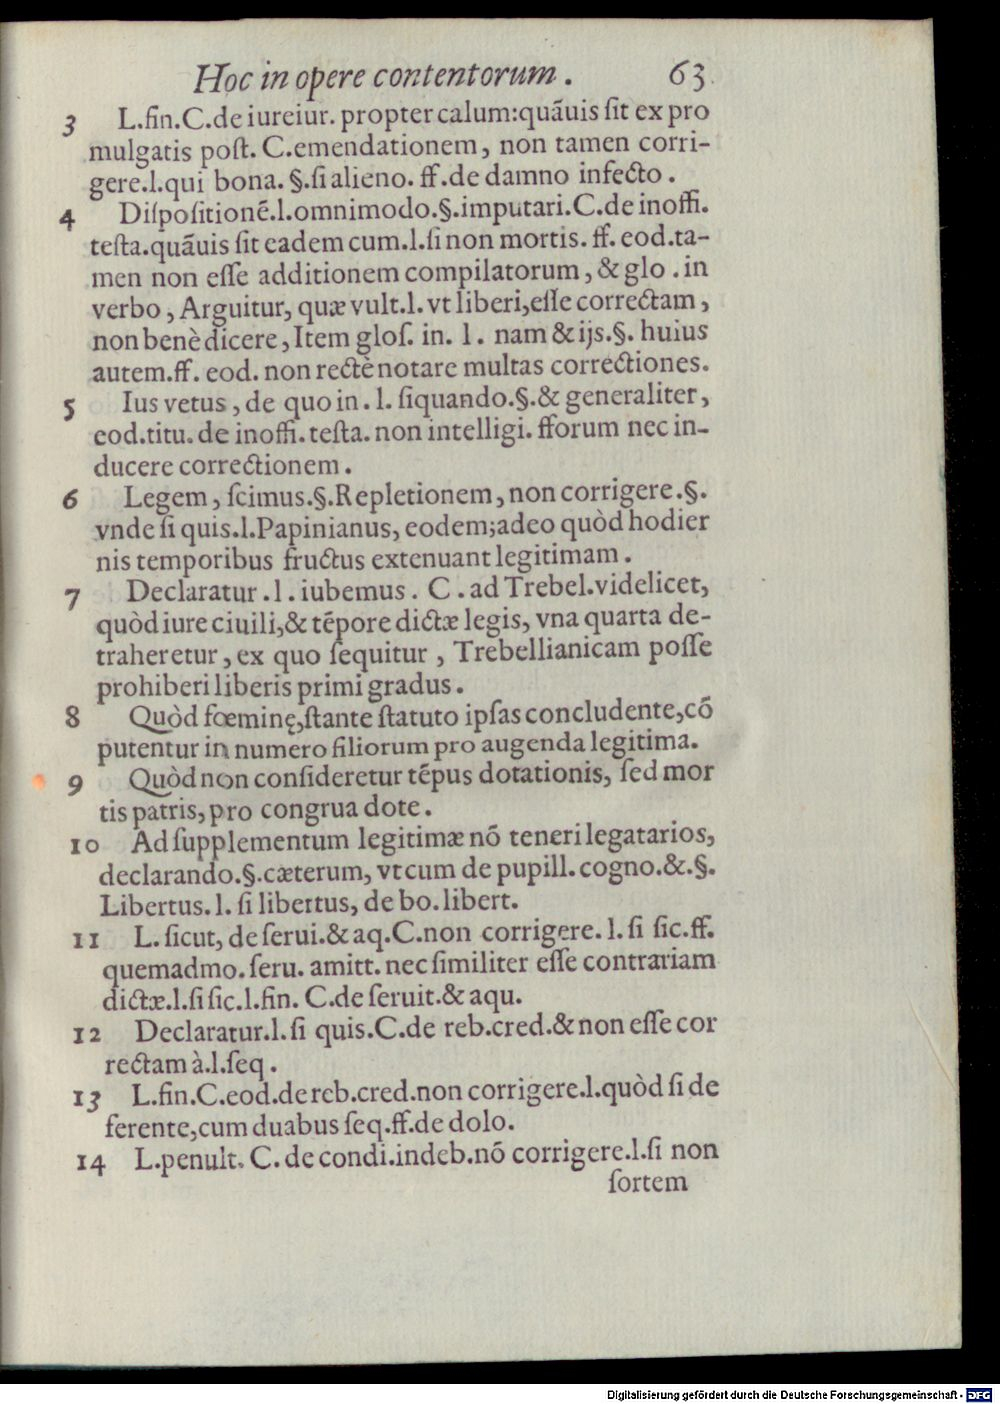 Hoc in opere contentorum . 63
3 L.fin.C.de iureiur. propter calum:quãuis ſit ex pro
mulgatis poſt. C.emendationem, non tamen corri-
gere.l.qui bona. §.ſi alieno. ff.de damno infecto .
4 Diſpoſitionẽ.l.omnimodo.§.imputari.C.de inoffi.
teſta.quãuis ſit eadem cum.l.ſi non mortis. ff. eod.ta-
men non eſſe additionem compilatorum, & glo . in
verbo , Arguitur, quæ vult.l. vt liberi,eſſe correctam ,
non benè dicere, Item gloſ. in. l . nam & ijs.§. huius
autem.ff. eod. non rectè notare multas correctiones.
5 Ius vetus , de quo in . l. ſiquando.§.& generaliter,
eod.titu. de inoffi. teſta. non intelligi. fforum nec in-
ducere correctionem .
6 Legem, ſcimus.§.Repletionem, non corrigere.§.
vnde ſi quis.l.Papinianus, eodem;adeo quòd hodier
nis temporibus fructus extenuant legitimam .
7 Declaratur . l . iubemus . C . ad Trebel.videlicet,
quòd iure ciuili,& tẽpore dictæ legis, vna quarta de-
traheretur, ex quo ſequitur , Trebellianicam poſſe
prohiberi liberis primi gradus .
8 Quòd fœminę,ſtante ſtatuto ipſas concludente,cõ
putentur in numero filiorum pro augenda legitima.
9 Quòd non conſideretur tẽpus dotationis, ſed mor
tis patris, pro congrua dote .
10 Ad ſupplementum legitimæ nõ teneri legatarios,
declarando.§.cæterum, vt cum de pupill. cogno.&.§.
Libertus. l. ſi libertus, de bo. libert.
11 L. ſicut, de ſerui.& aq.C.non corrigere. l. ſi ſic.ff.
quemadmo. ſeru. amitt. nec ſimiliter eſſe contrariam
dictæ.l.ſi ſic.l.fin. C.de ſeruit.& aqu.
12 Declaratur.l. ſi quis.C.de reb.cred.& non eſſe cor
rectam à.l.ſeq .
13 L.fin.C.eod.de reb.cred.non corrigere.l.quòd ſi de
ferente,cum duabus ſeq.ff.de dolo.
14 L.penult. C. de condi.indeb.nõ corrigere.l.ſi non
ſortem
Digitalisierung gefördert durch die Deutsche Forschungsgemeinschaft - DFG